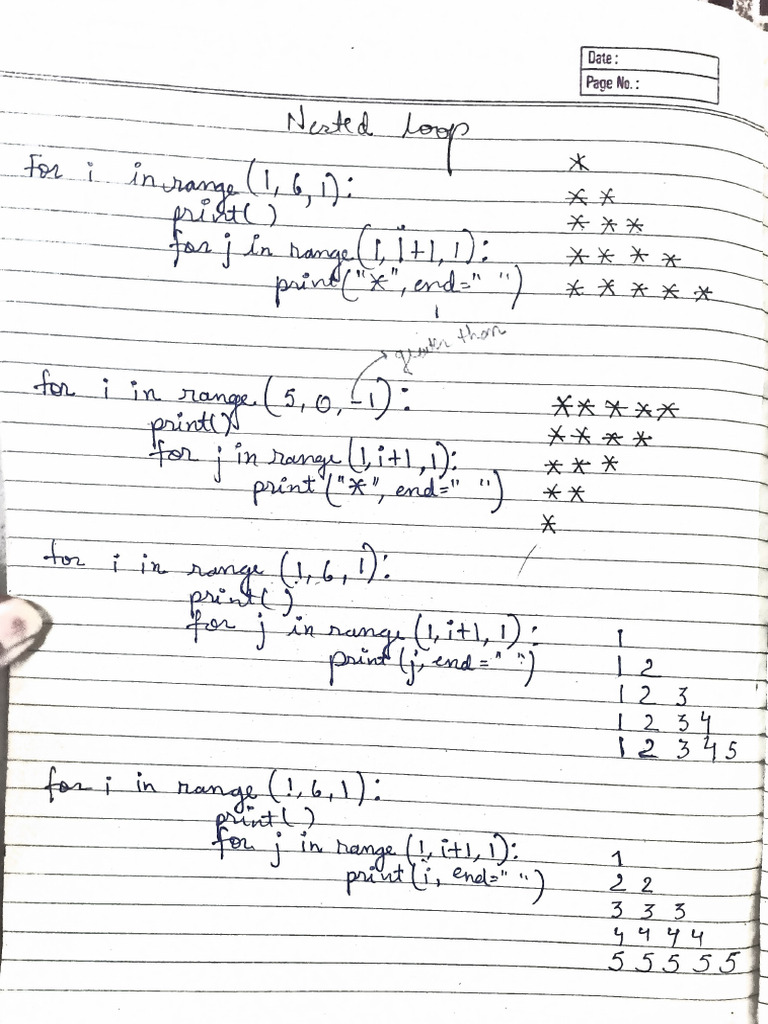 Date :
Page No. :
Nested loop
For i in range (1, 6, 1):
print( )
for j in range (1, i+1, 1):
print ("*", end=" ")
*
* *
* * *
* * * *
* * * * *
greater than
for i in range (5, 0, -1):
print()
for j in range (1, i+1, 1):
print ("*", end=" ")
* * * * *
* * * *
* * *
* *
*
for i in range (1, 6, 1):
print( )
for j in range (1, i+1, 1):
print (j, end=" ")
1
1 2
1 2 3
1 2 3 4
1 2 3 4 5
for i in range (1, 6, 1):
print( )
for j in range (1, i+1, 1):
print (i, end=" ")
1
2 2
3 3 3
4 4 4 4
5 5 5 5 5